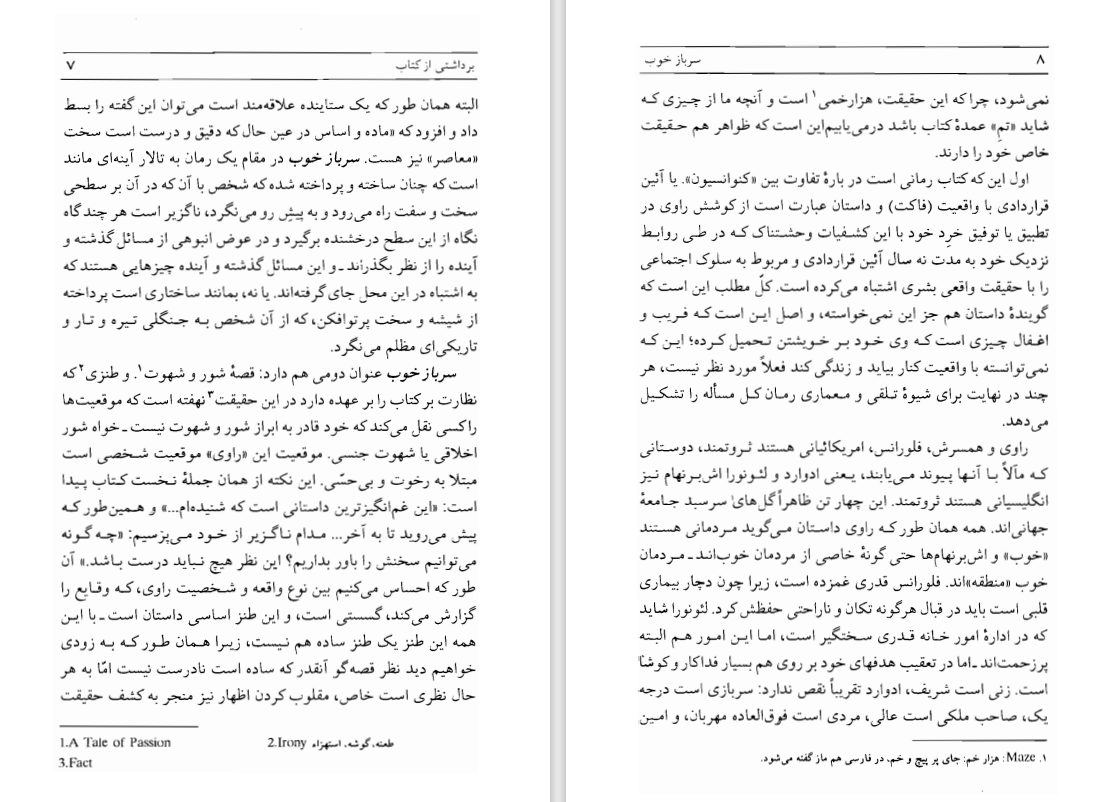 برداشتی از کتاب ۷
البته همان طور که یک ستاینده علاقه‌مند است می‌توان این گفته را بسط
داد و افزود که «ماده و اساس در عین حال که دقیق و درست است سخت
«معاصر» نیز هست. سرباز خوب در مقام یک رمان به تالار آینه‌ای مانند
است که چنان ساخته و پرداخته شده که شخص با آن که در آن بر سطحی
سخت و سفت راه می‌رود و به پیشِ رو می‌نگرد، ناگزیر است هر چندگاه
نگاه از این سطح درخشنده برگیرد و در عوض انبوهی از مسائل گذشته و
آینده را از نظر بگذراند ـ و این مسائل گذشته و آینده چیزهایی هستند که
به اشتباه در این محل جای گرفته‌اند. یا نه، بمانند ساختاری است پرداخته
از شیشه و سخت پرتوافکن، که از آن شخص به جنگلی تیره و تار و
تاریکی‌ای مظلم می‌نگرد.
سرباز خوب عنوان دومی هم دارد: قصهٔ شور و شهوت۱. و طنزی۲ که
نظارت بر کتاب را بر عهده دارد در این حقیقت۳ نهفته است که موقعیت‌ها
را کسی نقل می‌کند که خود قادر به ابراز شور و شهوت نیست ـ خواه شور
اخلاقی یا شهوت جنسی. موقعیت این «راوی» موقعیت شخصی است
مبتلا به رخوت و بی‌حسّی. این نکته از همان جملهٔ نخست کتاب پیدا
است: «این غم‌انگیزترین داستانی است که شنیده‌ام...» و همین‌طور که
پیش می‌روید تا به آخر... مدام ناگزیر از خود می‌پرسیم: «چه گونه
می‌توانیم سخنش را باور بداریم؟ این نظر هیچ نباید درست باشد.» آن
طور که احساس می‌کنیم بین نوع واقعه و شخصیت راوی، که وقایع را
گزارش می‌کند، گسستی است، و این طنز اساسی داستان است ـ با این
همه این طنز یک طنز ساده هم نیست، زیرا همان طور که به زودی
خواهیم دید نظر قصه‌گو آنقدر که ساده است نادرست نیست امّا به هر
حال نظری است خاص، مقلوب کردن اظهار نیز منجر به کشف حقیقت
1.A Tale of Passion 2.Irony طعنه، گوشه، استهزاء
3.Fact
۸ سرباز خوب
نمی‌شود، چرا که این حقیقت، هزارخمی۱ است و آنچه ما از چیزی که
شاید «تمِ» عمدهٔ کتاب باشد درمی‌یابیم‌این است که ظواهر هم حقیقت
خاص خود را دارند.
اول این که کتاب رمانی است در بارهٔ تفاوت بین «کنوانسیون». یا آئین
قراردادی با واقعیت (فاکت) و داستان عبارت است از کوشش راوی در
تطبیق یا توفیق خرِد خود با این کشفیات وحشتناک که در طی روابط
نزدیک خود به مدت نه سال آئین قراردادی و مربوط به سلوک اجتماعی
را با حقیقت واقعی بشری اشتباه می‌کرده است. کلّ مطلب این است که
گویندهٔ داستان هم جز این نمی‌خواسته، و اصل این است که فریب و
اغفال چیزی است که وی خود بر خویشتن تحمیل کرده؛ این که
نمی‌توانسته با واقعیت کنار بیاید و زندگی کند فعلاً مورد نظر نیست، هر
چند در نهایت برای شیوهٔ تلقی و معماری رمان کل مسأله را تشکیل
می‌دهد.
راوی و همسرش، فلورانس، امریکائیانی هستند ثروتمند، دوستانی
که مآلاً با آنها پیوند می‌یابند، یعنی ادوارد و لئونورا اش‌برنهام نیز
انگلیسیانی هستند ثروتمند. این چهار تن ظاهراً گل‌های سرسبد جامعهٔ
جهانی‌اند. همه همان طور که راوی داستان می‌گوید مردمانی هستند
«خوب» و اش‌برنهام‌ها حتی گونهٔ خاصی از مردمان خوب‌اند ـ مردمان
خوب «منطقه»اند. فلورانس قدری غمزده است، زیرا چون دچار بیماری
قلبی است باید در قبال هرگونه تکان و ناراحتی حفظش کرد. لئونورا شاید
که در ادارهٔ امور خانه قدری سختگیر است، اما این امور هم البته
پرزحمت‌اند ـ اما در تعقیب هدفهای خود بر روی هم بسیار فداکار و کوشا
است. زنی است شریف، ادوارد تقریباً نقص ندارد: سربازی است درجه
یک، صاحب ملکی است عالی، مردی است فوق‌العاده مهربان، و امین
۱. Maze : هزار خم: جای پر پیچ و خم، در فارسی هم ماز گفته می‌شود.